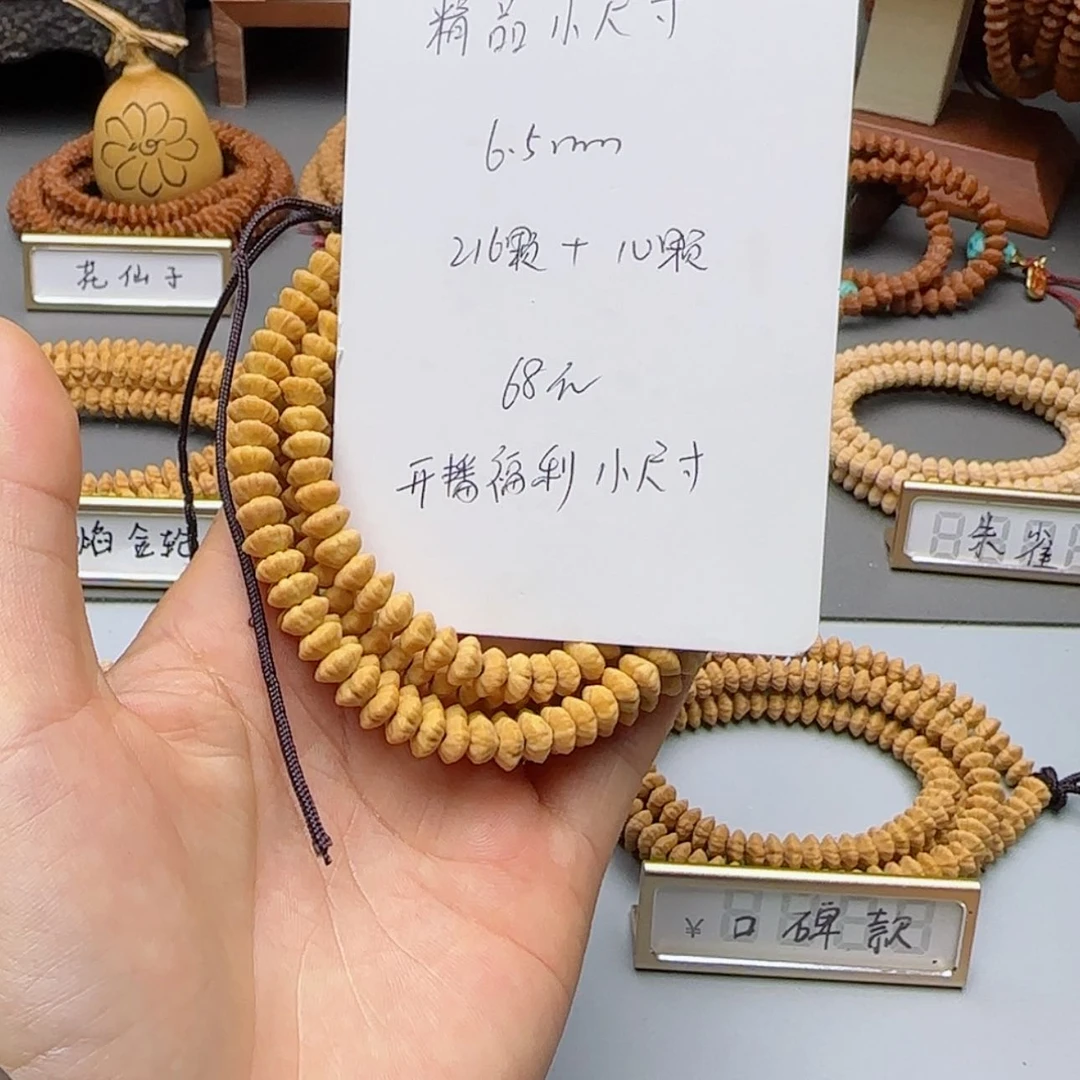 精品小尺寸
6.5mm
216颗+10颗
68元
开播福利小尺寸
花仙子
焰金轮
朱雀
¥ 口碑款